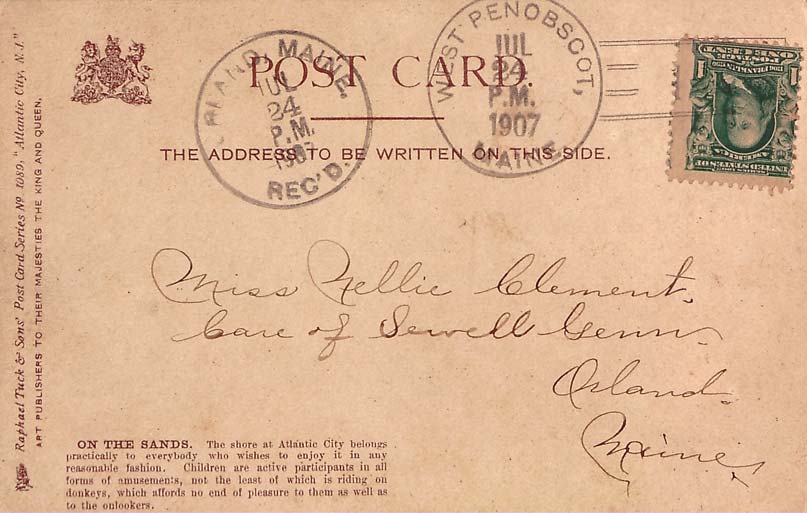 POST CARD.
THE ADDRESS TO BE WRITTEN ON THIS SIDE.
ORLAND, MAINE
JUL
24
P.M.
1907
REC'D.
WEST PENOBSCOT,
JUL
24
P.M.
1907
MAINE
1 1
ONE CENT
POSTAGE
FRANKLIN
UNITED STATES OF AMERICA
Miss Nellie Clement.
Care of Sewell Genn.
Orland.
Maine.
Raphael Tuck & Sons' Post Card Series No 1089, "Atlantic City, N.J."
ART PUBLISHERS TO THEIR MAJESTIES THE KING AND QUEEN.
ON THE SANDS. The shore at Atlantic City belongs
practically to everybody who wishes to enjoy it in any
reasonable fashion. Children are active participants in all
forms of amusements, not the least of which is riding on
donkeys, which affords no end of pleasure to them as well as
to the onlookers.